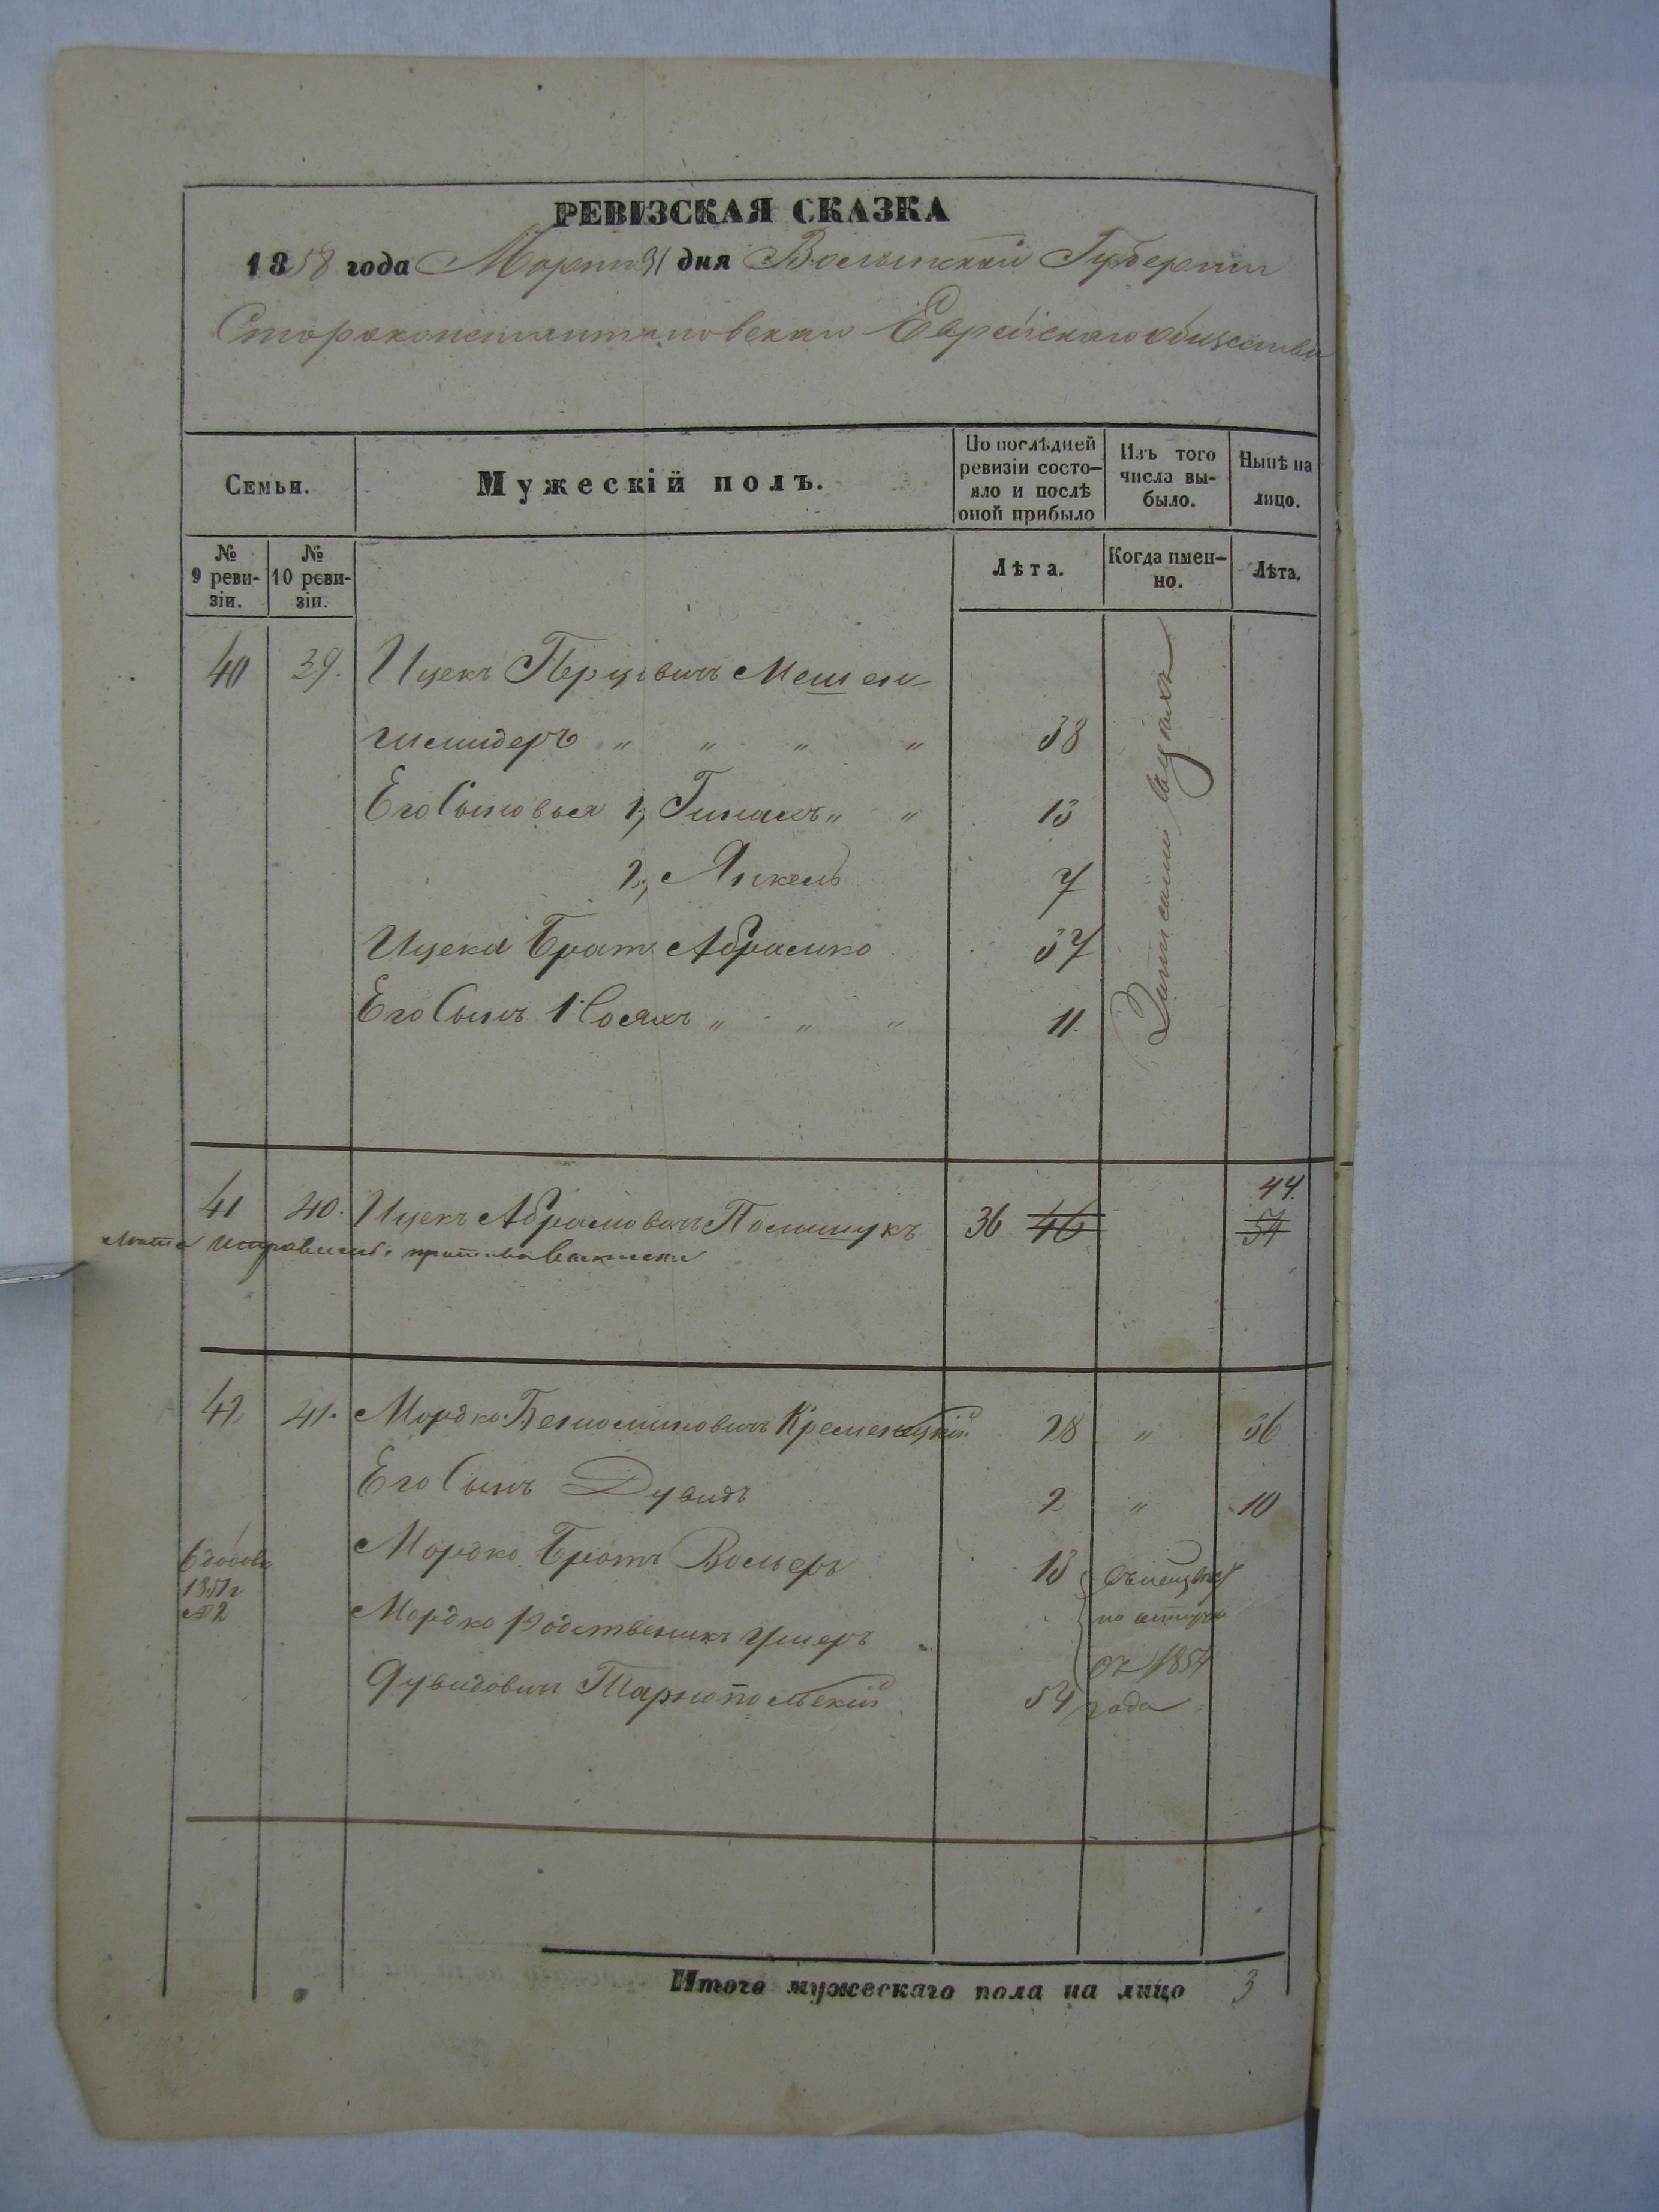 РЕВИЗСКАЯ СКАЗКА
1858 года Марта 31 дня Волынской Губернии
Староконстантиновскаго Еврейскаго общества
Семьи.
Мужескій полъ.
По послѣдней ревизіи состояло и послѣ оной прибыло
Изъ того числа выбыло.
Нынѣ на лицо.
№ 9 ревизіи.
№ 10 ревизіи.
Лѣта.
Когда именно.
Лѣта.
40 39. Ицекъ Перцовичъ Мешен-
шмидеръ " " " " 38
Его Сыновья 1, Пинахъ " " 13
2, Янкель 7
Ицека Братъ Абрамко 37
Его Сынъ 1 Сосяхъ " " " 11.
41 40. Ицекъ Абрамовичъ Полищукъ 36 46 44. 54
лѣта исправлены противо
42 41. Мордко Беньоминовичъ Кременецкій 28 " 36
Его Сынъ Дувидъ 2 " 10
Мордко Братъ Вольфъ 13
1851 г
№ 2
Мордко Родственикъ Умеръ
Дувидовичъ Тарнопольскій 54
1857
года
Итого мужескаго пола на лицо 3